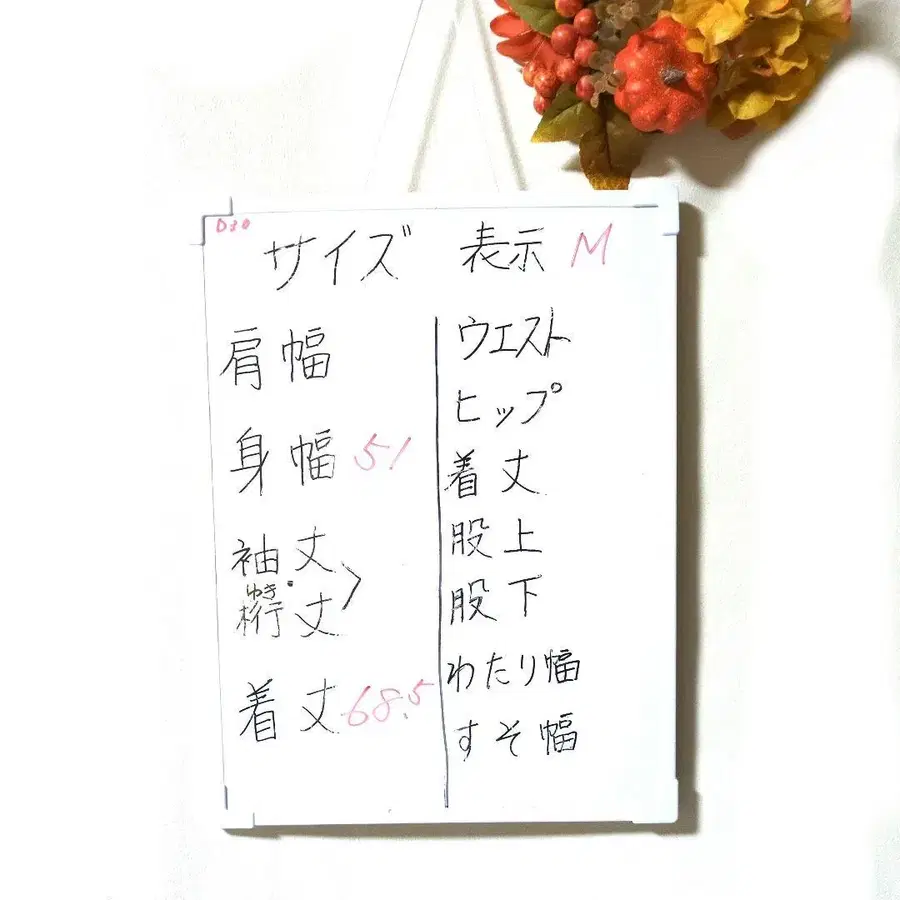 D30
サイズ 表示 M
肩幅
身幅 51
袖丈
ゆき
裄丈
着丈 68.5
ウエスト
ヒップ
着丈
股上
股下
わたり幅
すそ幅